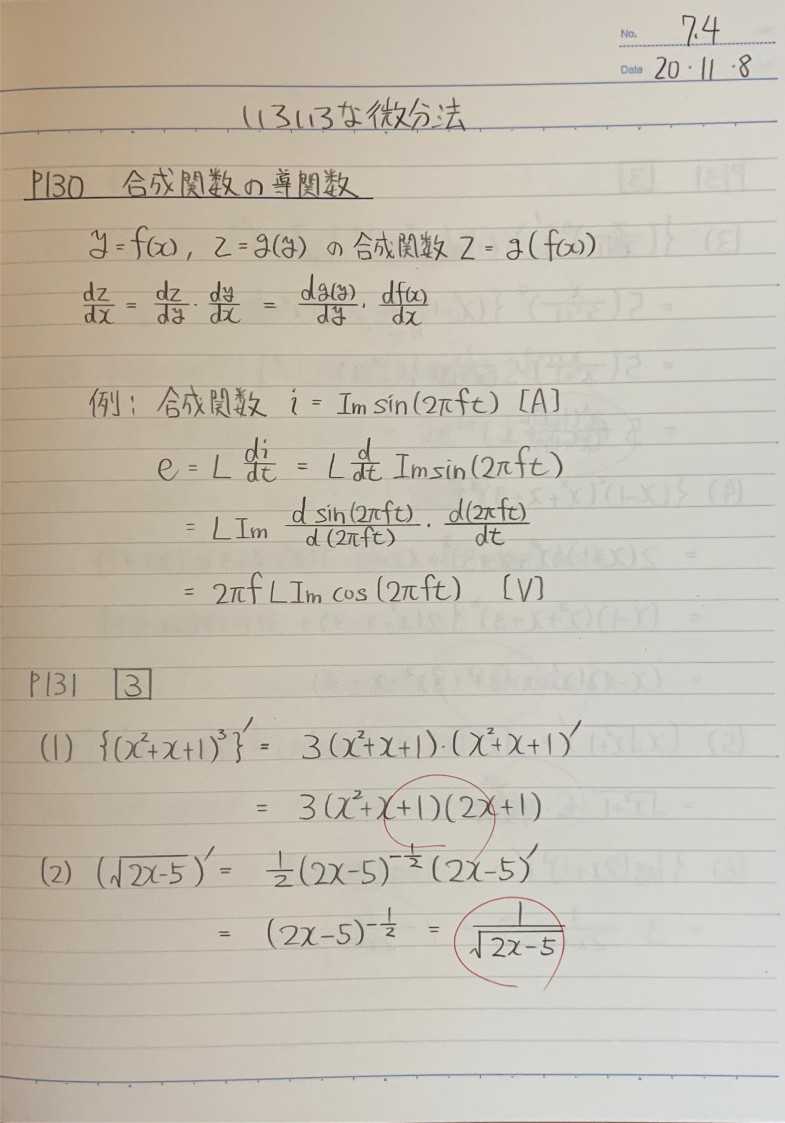 No. 7.4
Date 20・11・8
いろいろな微分法
P130 合成関数の導関数
y=f(x), z=g(y) の合成関数 z=g(f(x))
dz/dx = dz/dy · dy/dx = dg(y)/dy · df(x)/dx
例: 合成関数 i = Im sin(2πft) [A]
e = L di/dt = L d/dt Im sin(2πft)
= L Im d sin(2πft)/d(2πft) · d(2πft)/dt
= 2πf L Im cos(2πft) [V]
P131 3
(1) {(x²+x+1)³}′ = 3(x²+x+1)·(x²+x+1)′
= 3(x²+x+1)(2x+1)
(2) (√(2x-5))′ = 1/2(2x-5)^(-1/2) (2x-5)′
= (2x-5)^(-1/2) = 1/√(2x-5)